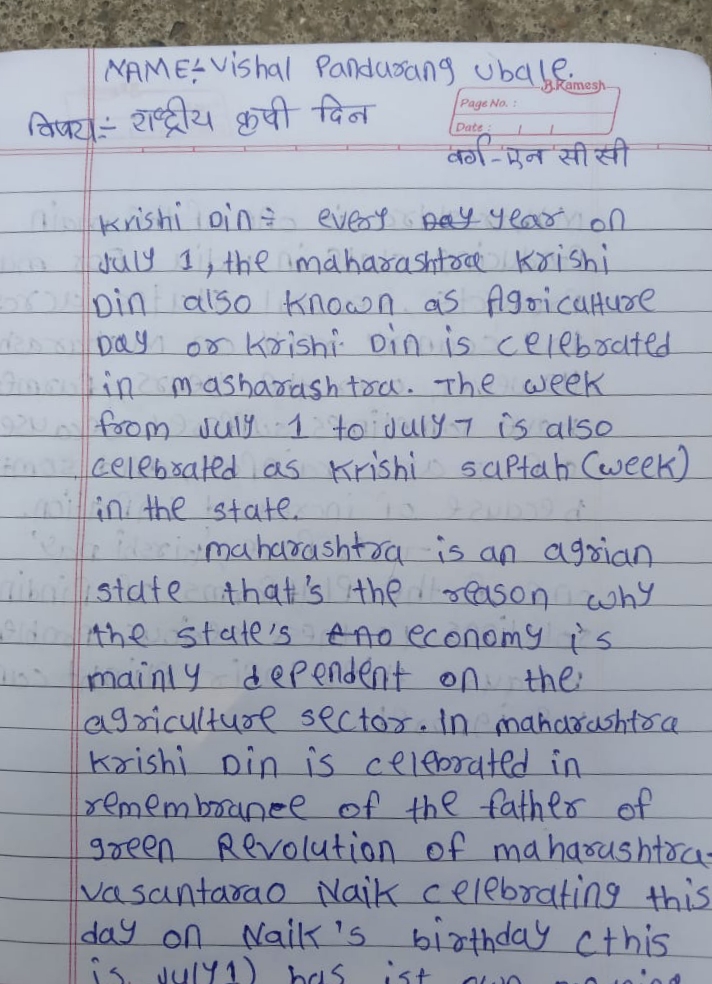 NAME:- Vishal Pandurang Ubale.
B.Ramesh
Page No. :
Date :
विषय:- राष्ट्रीय कृषी दिन
वर्ग-एन सी सी
Krishi Din:- every Day year on
July 1, the maharashtra Krishi
Din also known as Agriculture
Day or Krishi Din is celebrated
in masharashtra. The week
from July 1 to July 7 is also
celebrated as Krishi saptah (week)
in the state.
maharashtra is an agrian
state that's the reason why
the state's economy is
mainly dependent on the
agriculture sector. In maharashtra
Krishi Din is celebrated in
remembrance of the father of
green Revolution of maharashtra-
vasantarao Naik celebrating this
day on Naik's birthday (this
is July 1) has ist own